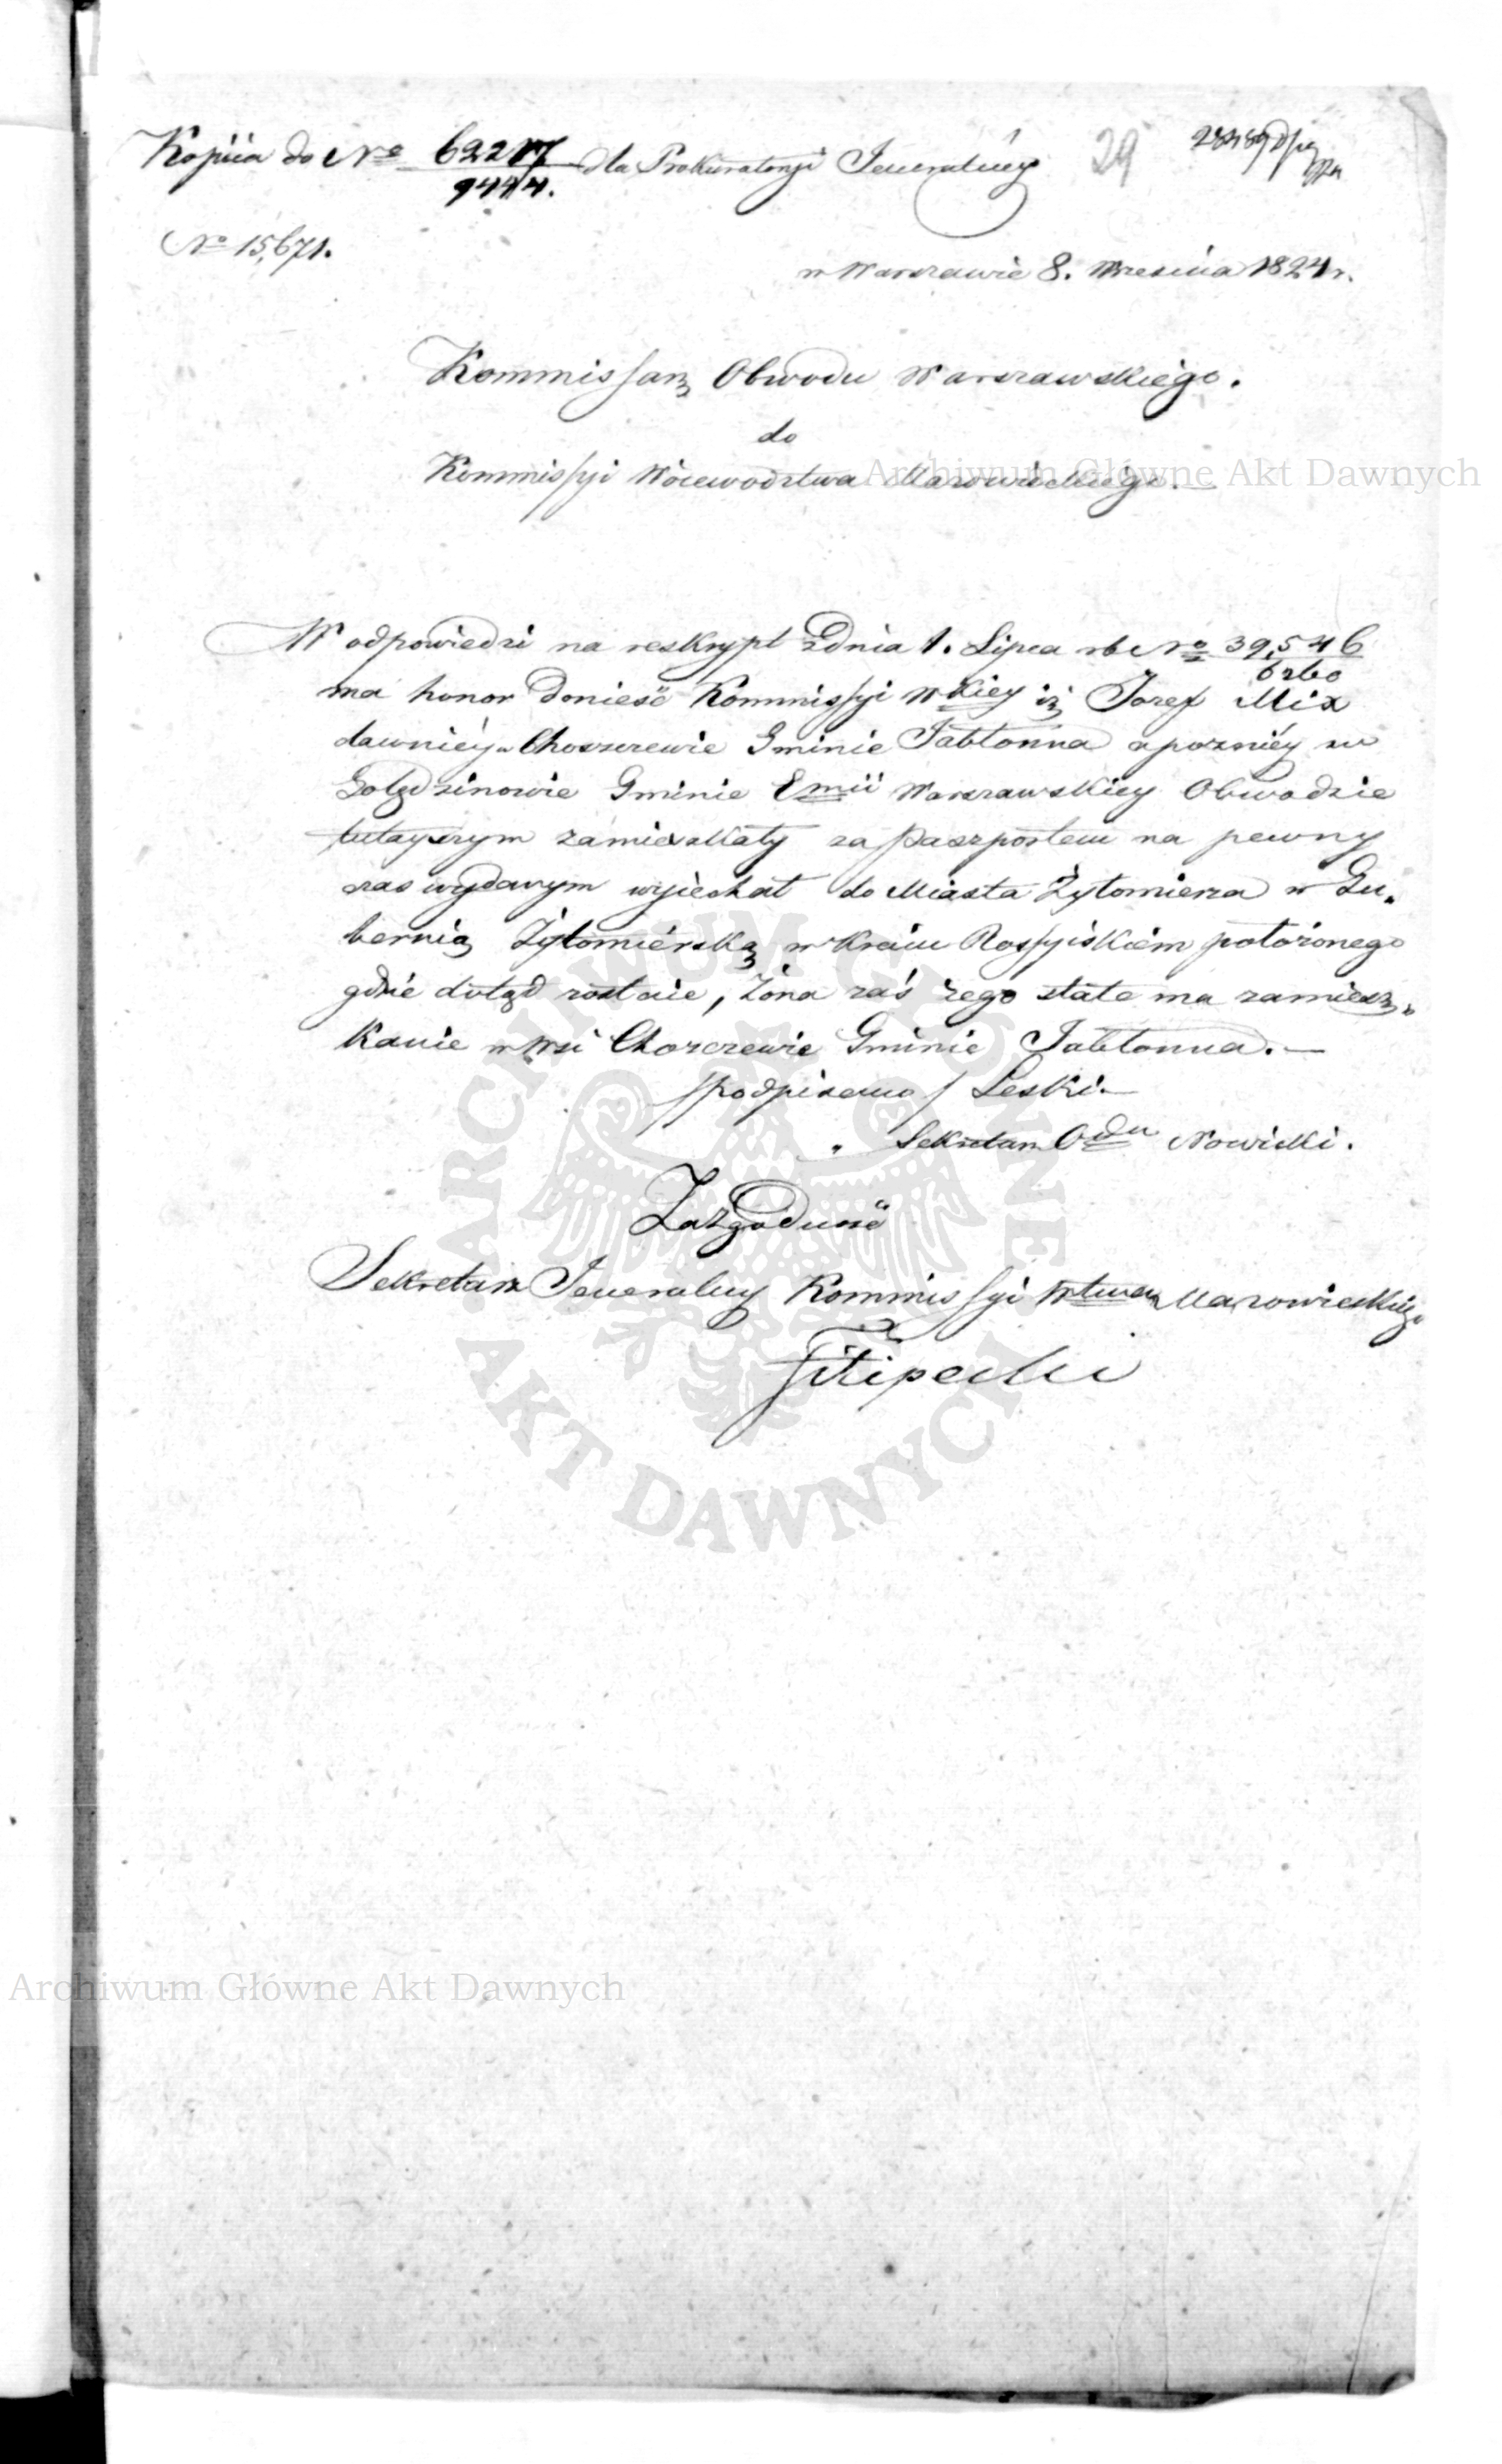 Kopiia do No 62217/9444. dla Prokuratoryi Jeneralnéy 29
No 15,671.
w Warszawie 8. Wrzesnia 1824 r.
Kommissarz Obwodu Warszawskiego.
do
Kommissyi Woiewodztwa Mazowieckiego. —
Archiwum Główne Akt Dawnych
W odpowiedzi na reskrypt z dnia 1. Lipca rb No 39,546/6260
ma honor donieść Kommissyi Wkiey iż Jozef Mix
dawniéy w Choszczewie Gminie Jabłonna a pozniéy w
Golędzinowie Gminie Emii Warszawskiey Obwodzie
tutayszym zamieszkały za Paszportem na pewny
czas wydanym wyiechał do Miasta Żytomierza w Gu„
bernią Żytomiérską w Kraiu Rossyiskiém położonego
gdzie dotąd zostaie, Żona zaś iego stałe ma zamiesz„
kanie w Wsi Chorczewie Gminie Jabłonna. —
/podpisano/ Leski. —
„ Sekretarz Odu Nowicki.
Za zgodność
Sekretarz Jeneralny Kommissyi Wtwa Mazowieckiego
Filipecki
ARCHIWUM GŁÓWNE AKT DAWNYCH
Archiwum Główne Akt Dawnych